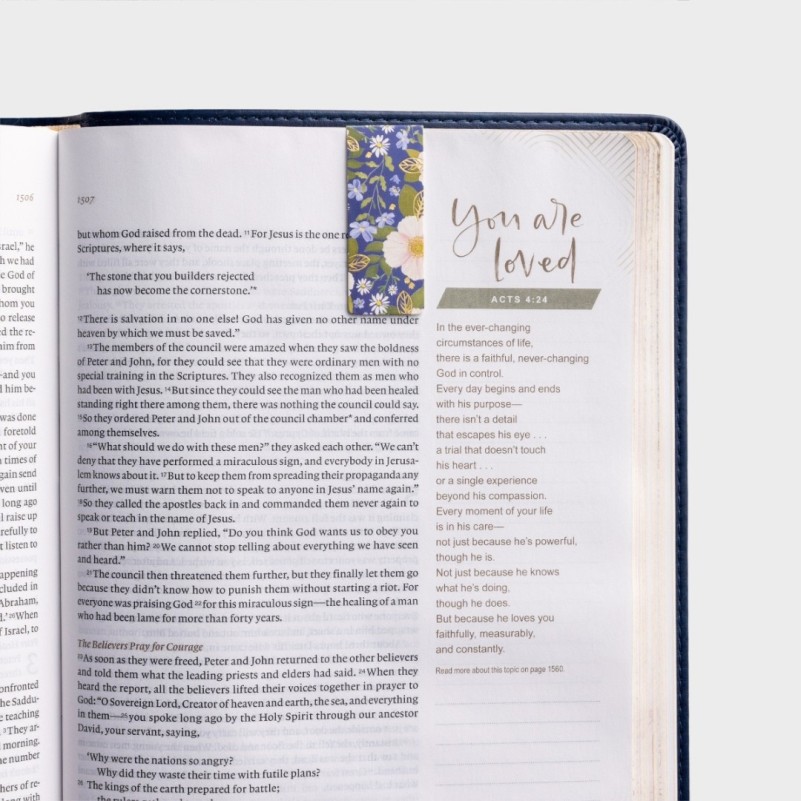 1506
rael," he
h we had
e God of
brought
hom you
o release
d the re-
him from
—and you
d him be-
was done
foretold
nt of your
n times of
gain send
ven until
long ago
l raise up
refully to
t listen to
appening
cluded in
Abraham,
d.' 26When
f Israel, to
onfronted
he Saddu-
e teaching
3They ar-
morning.
e number
hers of re-
long with
1507
but whom God raised from the dead. 11For Jesus is the one r
Scriptures, where it says,
'The stone that you builders rejected
has now become the cornerstone.'*
12There is salvation in no one else! God has given no other name under
heaven by which we must be saved."
13The members of the council were amazed when they saw the boldness
of Peter and John, for they could see that they were ordinary men with no
special training in the Scriptures. They also recognized them as men who
had been with Jesus. 14But since they could see the man who had been healed
standing right there among them, there was nothing the council could say.
15So they ordered Peter and John out of the council chamber* and conferred
among themselves.
16"What should we do with these men?" they asked each other. "We can't
deny that they have performed a miraculous sign, and everybody in Jerusa-
lem knows about it. 17But to keep them from spreading their propaganda any
further, we must warn them not to speak to anyone in Jesus' name again."
18So they called the apostles back in and commanded them never again to
speak or teach in the name of Jesus.
19But Peter and John replied, "Do you think God wants us to obey you
rather than him? 20We cannot stop telling about everything we have seen
and heard."
21The council then threatened them further, but they finally let them go
because they didn't know how to punish them without starting a riot. For
everyone was praising God 22for this miraculous sign—the healing of a man
who had been lame for more than forty years.
The Believers Pray for Courage
23As soon as they were freed, Peter and John returned to the other believers
and told them what the leading priests and elders had said. 24When they
heard the report, all the believers lifted their voices together in prayer to
God: "O Sovereign Lord, Creator of heaven and earth, the sea, and everything
in them—25you spoke long ago by the Holy Spirit through our ancestor
David, your servant, saying,
'Why were the nations so angry?
Why did they waste their time with futile plans?
26 The kings of the earth prepared for battle;
You are
loved
ACTS 4:24
In the ever-changing
circumstances of life,
there is a faithful, never-changing
God in control.
Every day begins and ends
with his purpose—
there isn't a detail
that escapes his eye . . .
a trial that doesn't touch
his heart . . .
or a single experience
beyond his compassion.
Every moment of your life
is in his care—
not just because he's powerful,
though he is.
Not just because he knows
what he's doing,
though he does.
But because he loves you
faithfully, measurably,
and constantly.
Read more about this topic on page 1560.